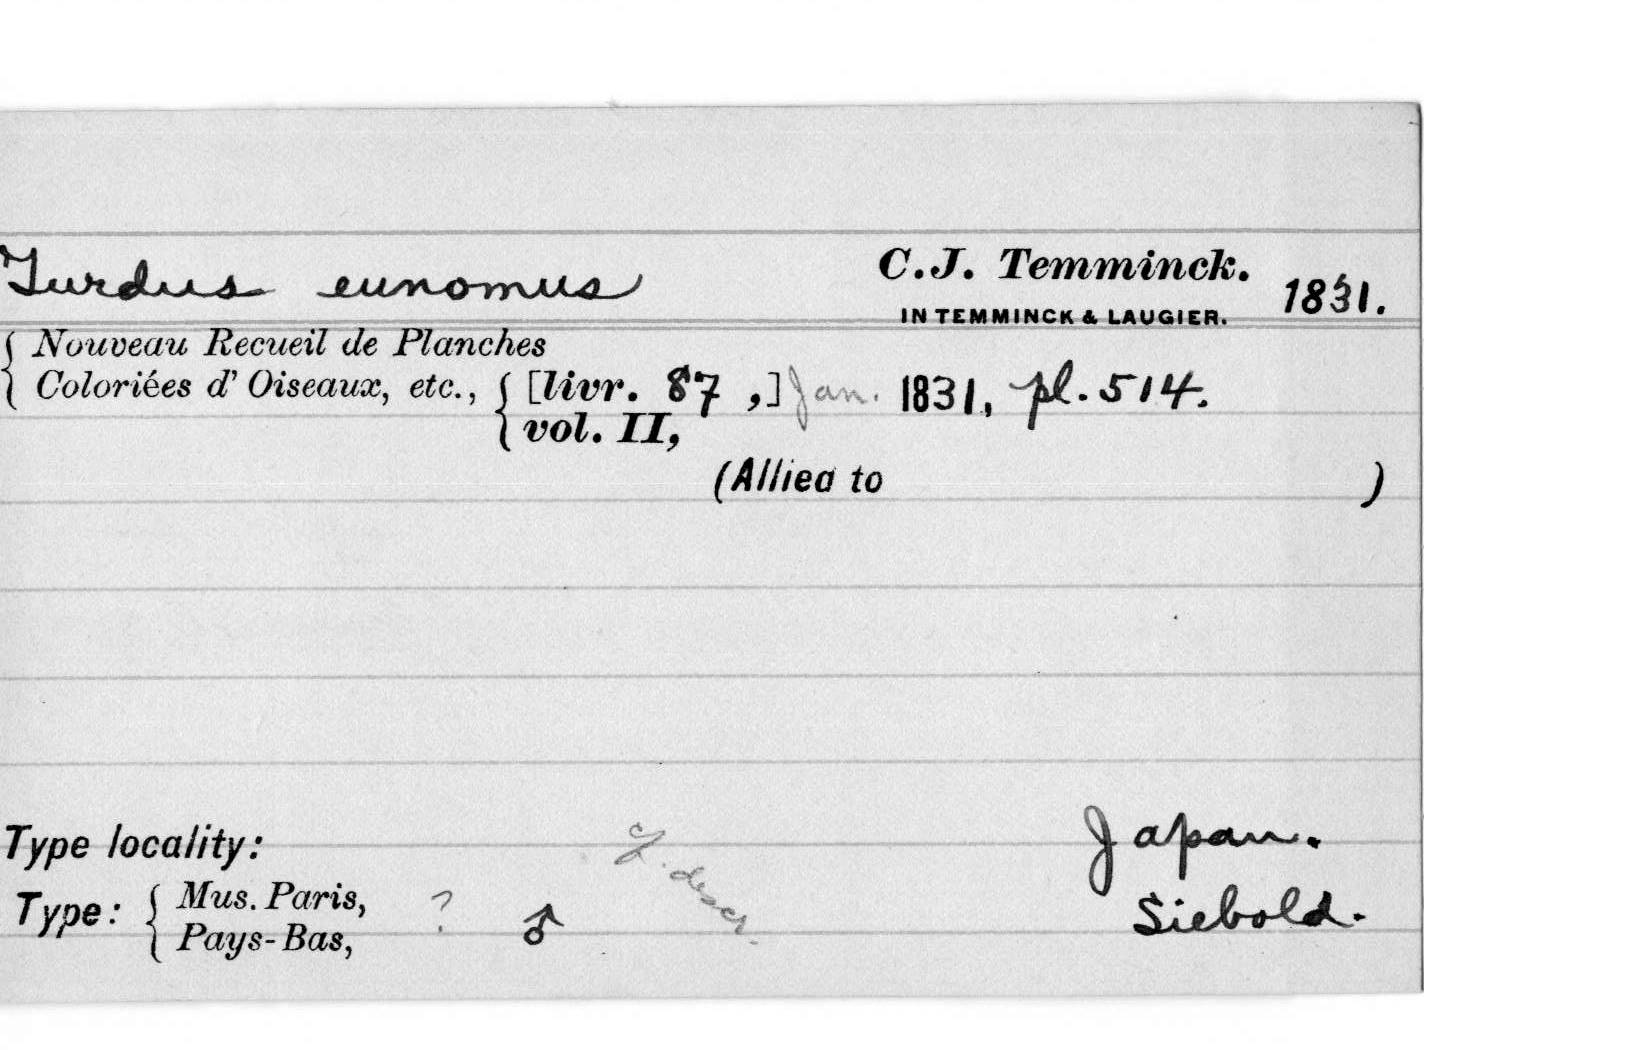 Turdus eunomus
C. J. Temminck.
IN TEMMINCK & LAUGIER.
1831.
Nouveau Recueil de Planches
Coloriées d' Oiseaux, etc.,
[livr. 87 ,] Jan. 1831, pl. 514.
vol. II,
(Allied to )
Type locality: Japan.
Type: Mus. Paris, ? ♂ Siebold.
Pays-Bas,
cf. descr.